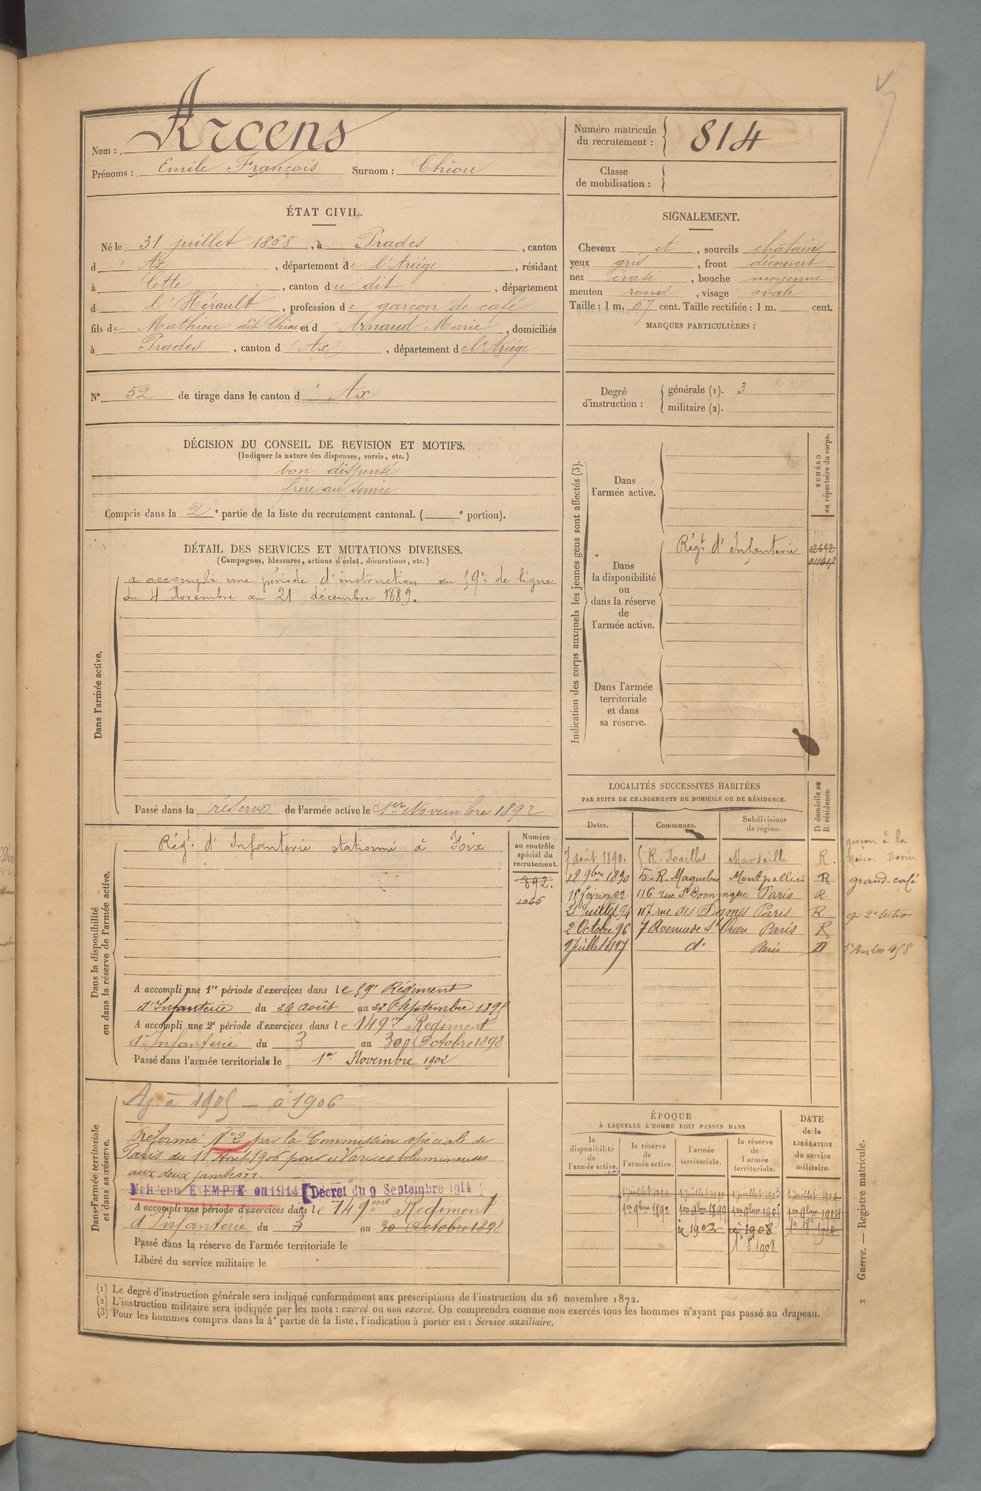 Nom : Arcens
Prénoms : Emile François Surnom : Chiou
Numéro matricule du recrutement : 814
Classe de mobilisation :
ÉTAT CIVIL.
Né le 31 juillet 1868, à Prades, canton
d' Ax, département de l'Ariège, résidant
à Cette, canton du dit, département
d l'Hérault, profession de garçon de café
fils de Mathieu dit Chiou et d' Arnaud Marie, domiciliés
à Prades, canton d'Ax, département de l'Ariège
N° 52 de tirage dans le canton d' Ax
SIGNALEMENT.
Cheveux et, sourcils chatains
yeux gris, front découvert
nez évasé, bouche moyenne
menton rond, visage ovale
Taille : 1 m. 67 cent. Taille rectifiée : 1 m. cent.
MARQUES PARTICULIÈRES :
Degré d'instruction : générale (1). 3
militaire (2).
DÉCISION DU CONSEIL DE REVISION ET MOTIFS.
(Indiquer la nature des dispenses, sursis, etc.)
bon dispensé
frère au service
Compris dans la 2e partie de la liste du recrutement cantonal. ( e portion).
DÉTAIL DES SERVICES ET MUTATIONS DIVERSES.
(Campagnes, blessures, actions d'éclat, décorations, etc.)
Dans l'armée active.
a accompli une période d'instruction au 59e de ligne
du 4 Novembre au 21 décembre 1889.
Passé dans la réserve de l'armée active le 1er Novembre 1892
Indication des corps auxquels les jeunes gens sont affectés (3).
NUMÉRO au répertoire du corps.
Dans l'armée active.
Dans la disponibilité ou dans la réserve de l'armée active.
Régt d'Infanterie
Dans l'armée territoriale et dans sa réserve.
Dans la disponibilité ou dans la réserve de l'armée active.
Régt d'Infanterie stationné à Foix
Numéro au contrôle spécial du recrutement.
892.
A accompli une 1re période d'exercices dans le 59e Régiment
d'Infanterie du 26 août au 22 Septembre 1895
A accompli une 2e période d'exercices dans le 149me Régiment
d'Infanterie du 3 au 30 Octobre 1898
Passé dans l'armée territoriale le 1er Novembre 1902
LOCALITÉS SUCCESSIVES HABITÉES
PAR SUITE DE CHANGEMENTS DE DOMICILE OU DE RÉSIDENCE.
Dates. Communes. Subdivisions de région. D domicile ou R résidence.
7 août 1890. Marseille R.
18 9bre 1890 Montpellier R grand-café
15 février 92 116 rue St Dominique Paris R.
117 rue des Dames Paris R
2 Octobre 96 7 Avenue de St Ouen Paris R
9 juillet 1897 do Paris D
Dans l'armée territoriale et dans sa réserve.
Aj. à 1905 — à 1906
Réformé N°2 par la Commission spéciale de
Paris du 11 Août 1906 pour "Varices volumineuses
aux deux jambes".
Maintenu EXEMPTÉ en 1914 [Décret du 9 Septembre 1914
A accompli une période d'exercices dans le 149me Régiment
d'Infanterie du 3 au 30 Octobre 1898
Passé dans la réserve de l'armée territoriale le
Libéré du service militaire le
ÉPOQUE
À LAQUELLE L'HOMME DOIT PASSER DANS
la disponibilité de l'armée active. la réserve de l'armée active. l'armée territoriale. la réserve de l'armée territoriale.
DATE de la LIBÉRATION du service militaire.
1er 9bre 1892
1903 1908
(1) Le degré d'instruction générale sera indiqué conformément aux prescriptions de l'instruction du 26 novembre 1872.
(2) L'instruction militaire sera indiquée par les mots : exercé ou non exercé. On comprendra comme non exercés tous les hommes n'ayant pas passé au drapeau.
(3) Pour les hommes compris dans la 4e partie de la liste, l'indication à porter est : Service auxiliaire.
2 Guerre. — Registre matricule.